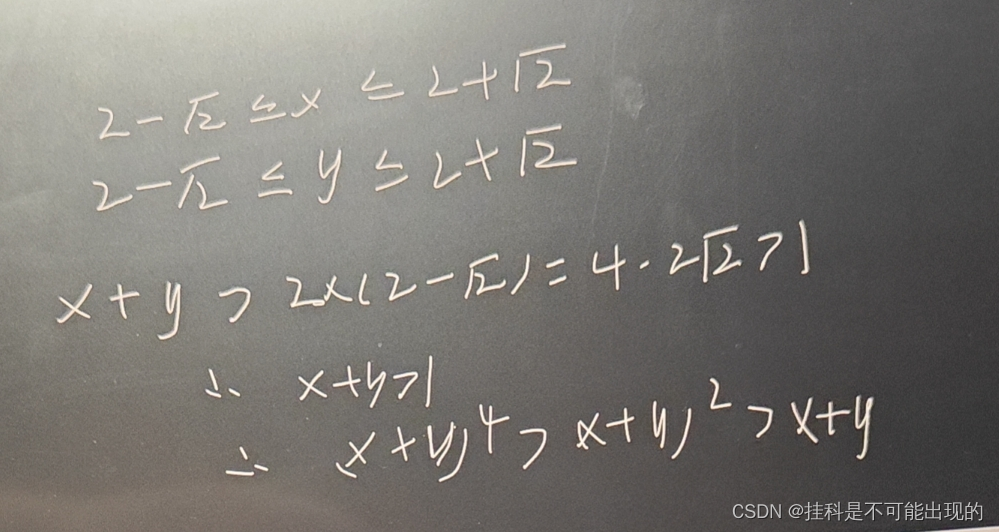 2-√2 ≤ x ≤ 2+√2
2-√2 ≤ y ≤ 2+√2
x+y > 2×(2-√2) = 4-2√2 > 1
∴ x+y>1
∴ (x+y)⁴ > (x+y)² > x+y
CSDN @挂科是不可能出现的